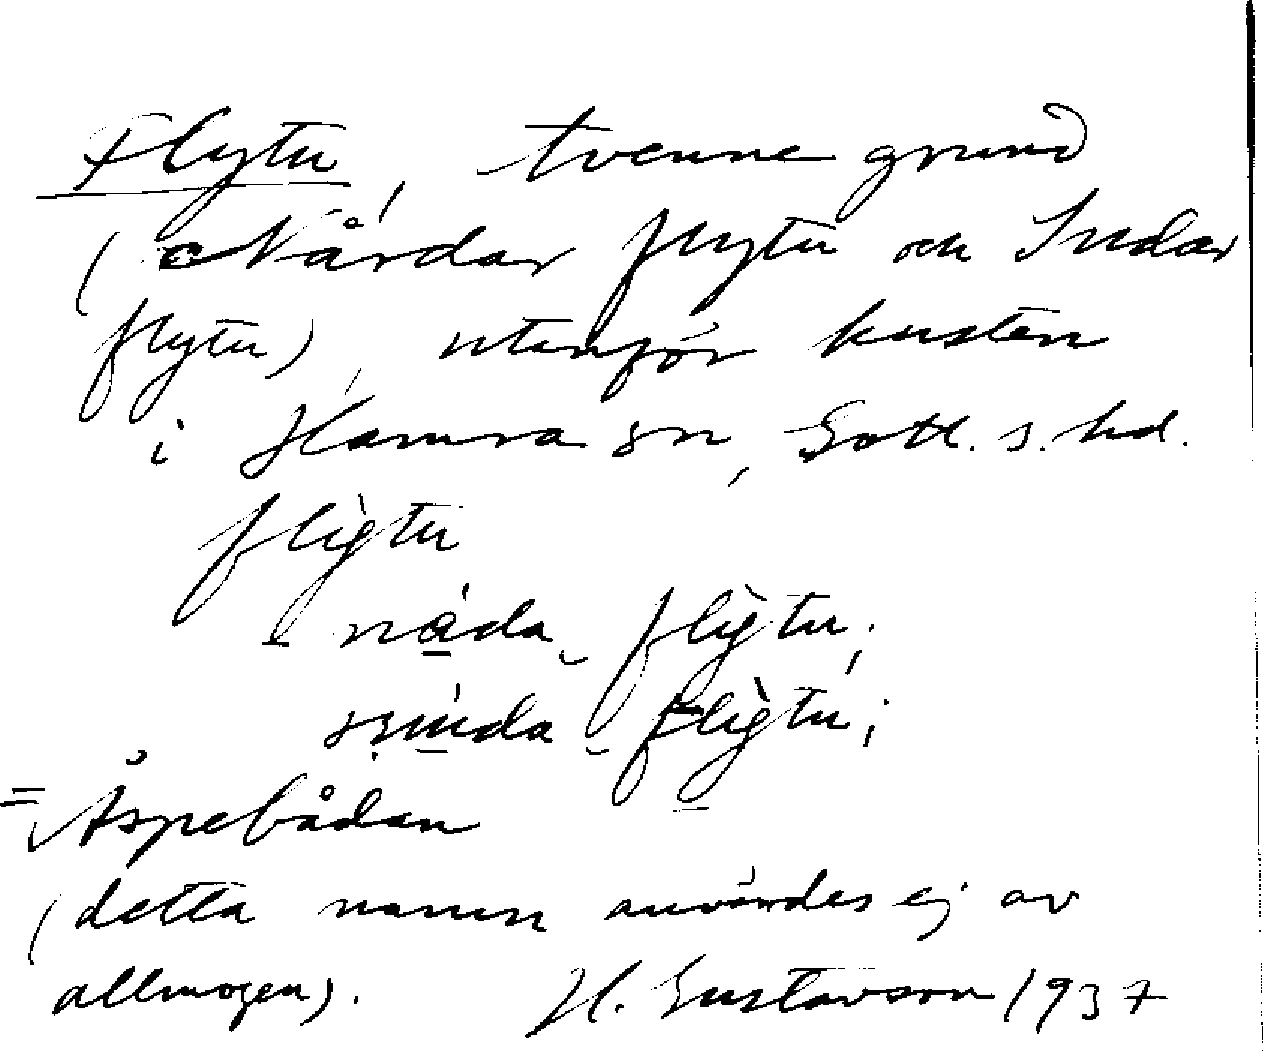 Flytu, tvenne grund
(Nårdar flytu och Sudar
flytu), utanför kusten
i Hamra sn, Gotl. s. hd.
fligtu
nåda flìgtu;
suda flìgtu;
= Äspebådan
(detta namn användes ej av
allmogen). H. Gustavson 1937